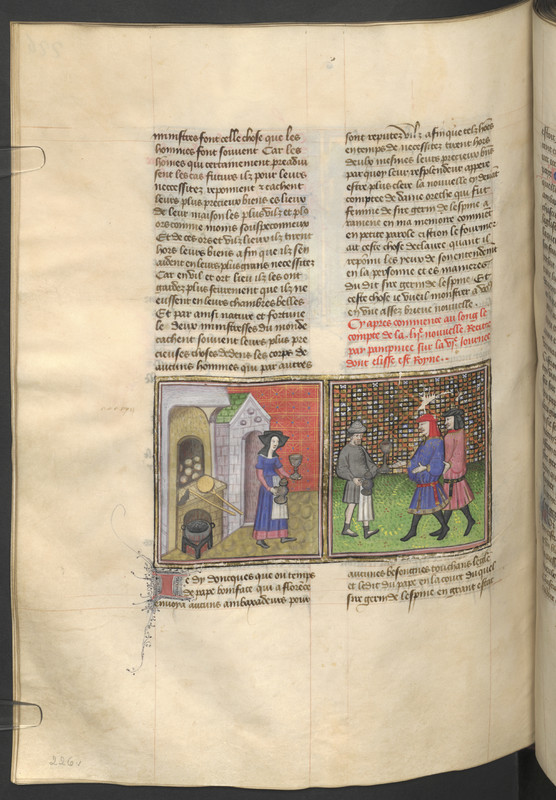 ministres font celle chose que les
hommes font souvent Car les
homes qui certainement preadui
sent les cas futurs ilz pour leurs
necessitez reponnent et cachent
leurs plus precieux biens es lieux
de leur maison les plus vilz et plo
ors comme moins souspeconneux
Et de ces ors et vilz lieux ilz tirent
hors leurs biens afin que ilz sen
aident en leurs plus grans necessitez
Car en vil et ort lieu ilz les ont
gardez plus seurement que ilz ne
eussent en leurs chambres belles
Et par ainsi nature et fortune
le deux ministresses du monde
cachent souvent leurs plus pre
cieuses choses dedens les corps de
aucuns hommes qui par autres
sont reputez vilz afin que telz hoes
en temps de necessitez tirent hors
deulx mesmes leurs precieux bns
par quoy leur resplendeur appere
estre plus clere la nouvelle en
comptee de dame orethe qui fut
femme de sire geri de lespine a
ramene en ma memoire comment
en petite parole cisti le fournier
eut ceste chose declaree quant il
repoint les yeux de son entendent
en la personne et es manieres
du dit sire geri de lespine Et
ceste chose ie vueil monstrer a vos
en une assez brieve nouvelle
Cy apres commence au long le
compte de la nouvelle Recitee
par pampinee sur la Journee
dont elisse est Royne
Ie dy doncques que ou temps
de pape boniface qui a florece
envoya aucuns ambaxadeurs pour
aucunes besongnes touchans le sie
et le dit du pape en la court duquel
sire geri de lespine en grant estat
226v